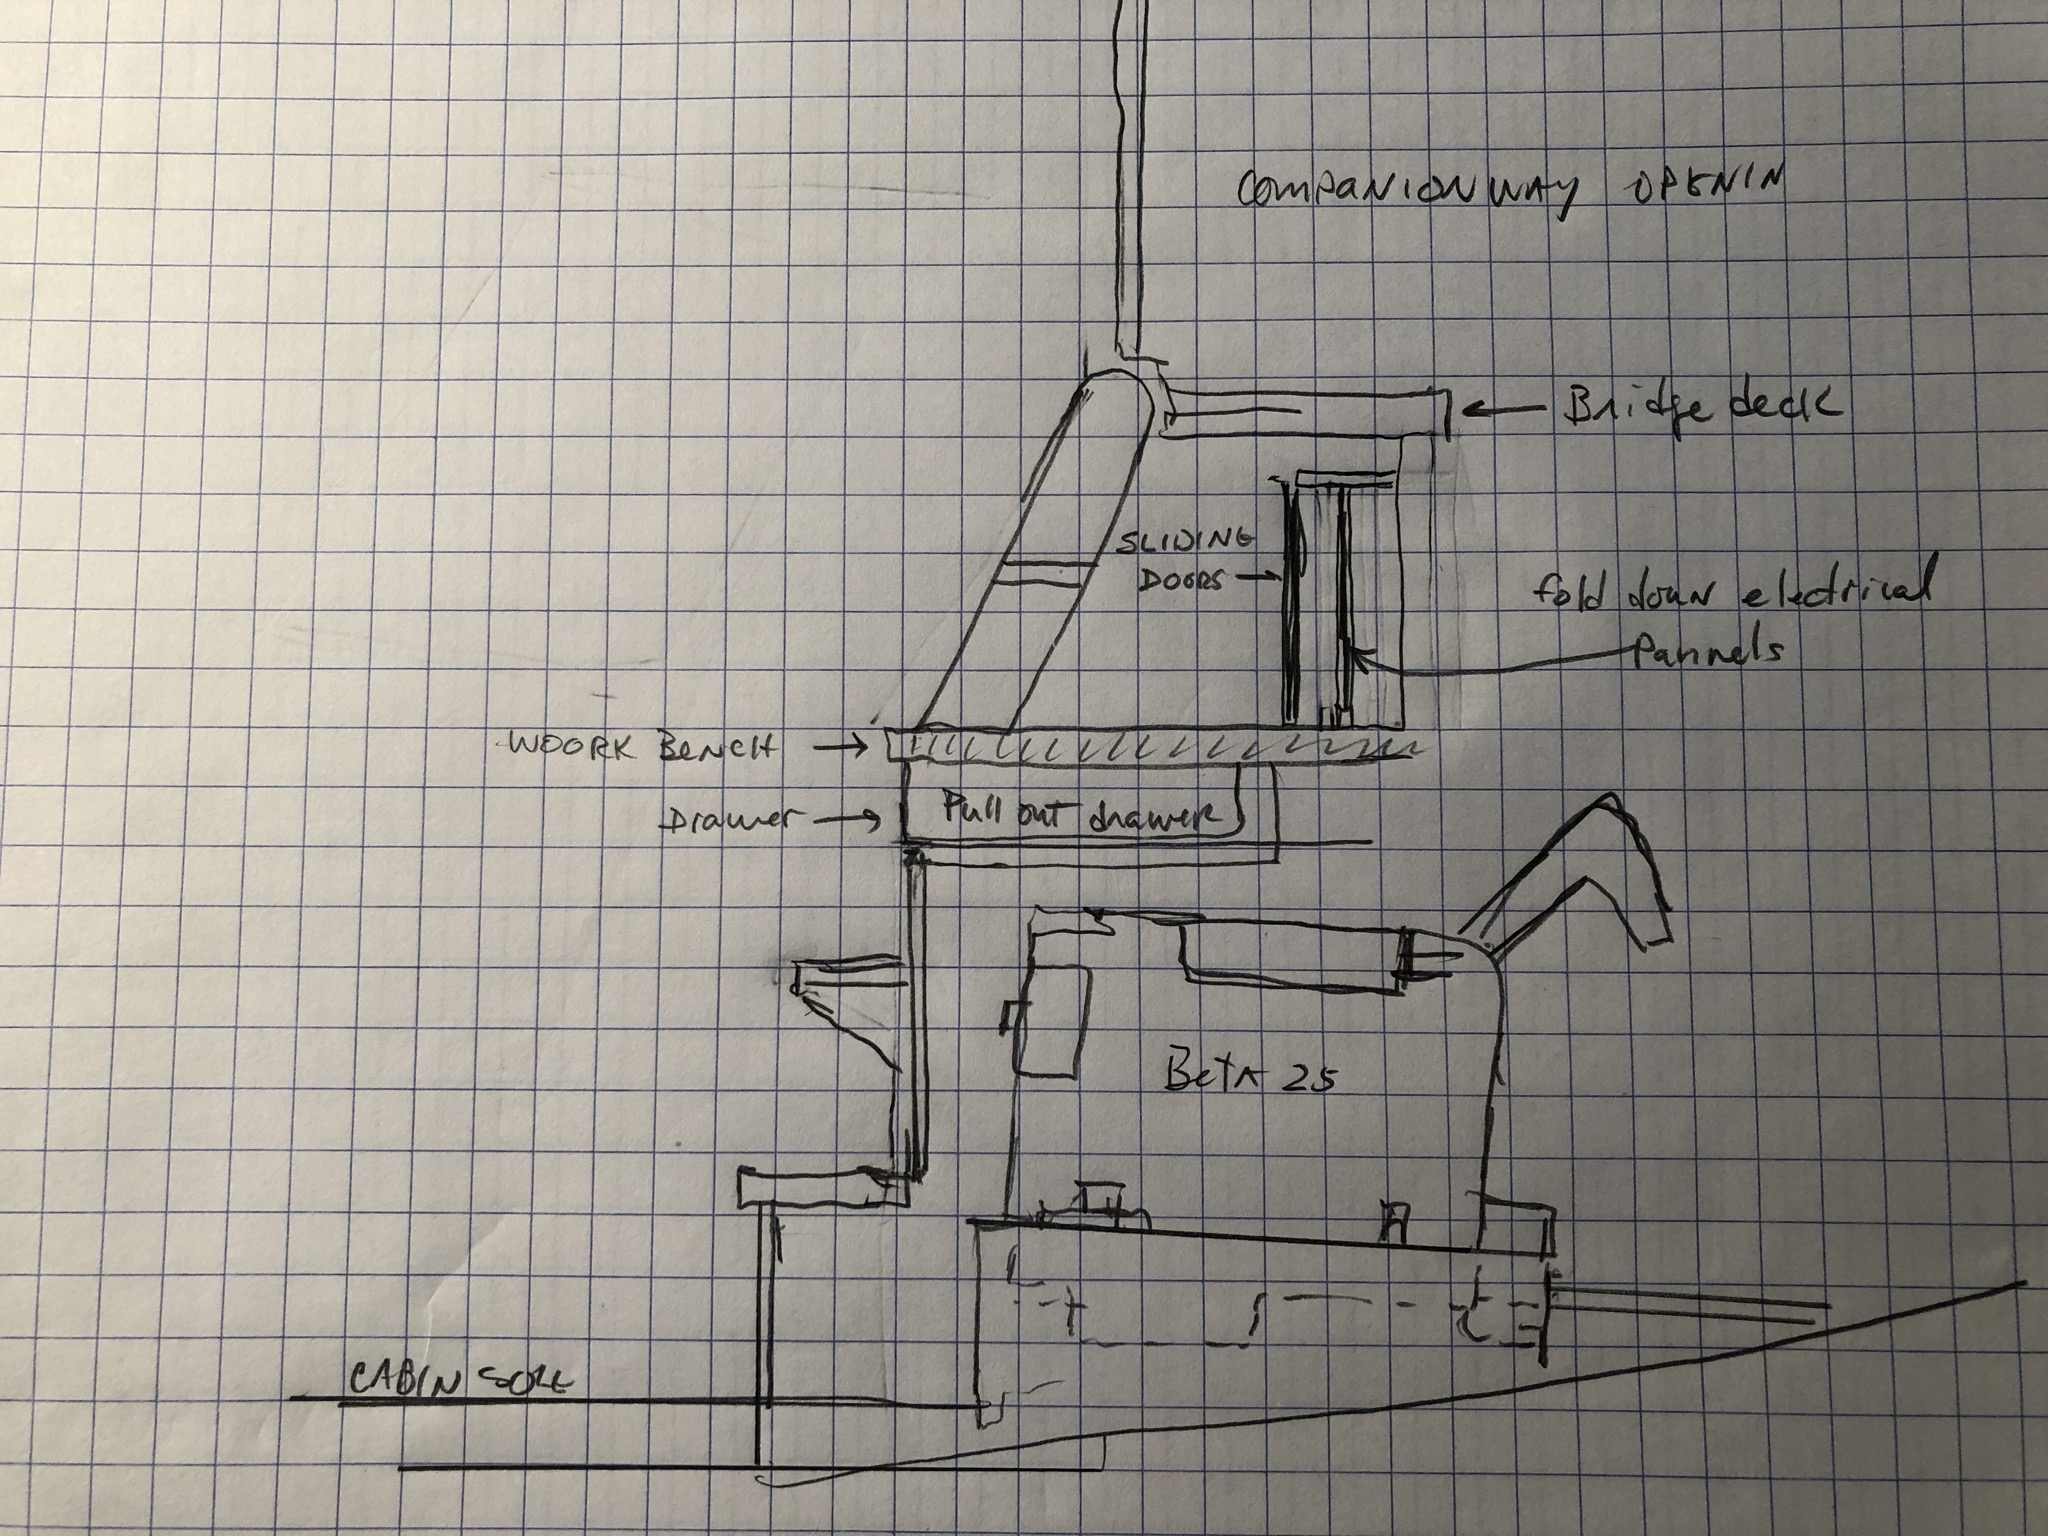 COMPANIONWAY OPENIN
← Bridge deck
SLIDING
DOORS →
fold down electrical
Pannels
WOORK BENCH →
Drawer →
Pull out drawer
Beta 25
CABIN SOLE